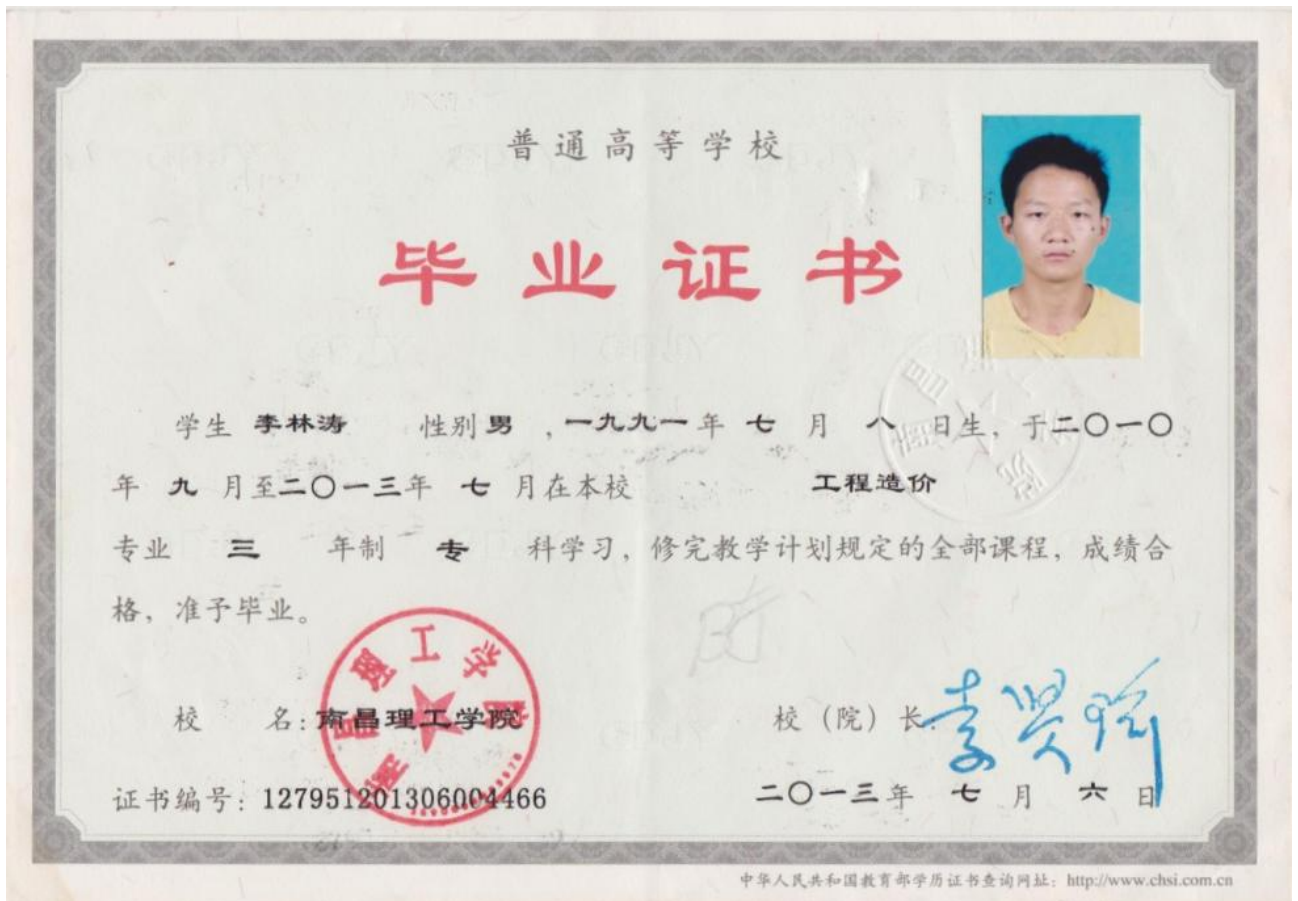 普通高等学校
毕业证书
学生 李林涛 性别 男 , 一九九一 年 七 月 八 日生, 于二〇一〇
年 九 月至二〇一三年 七 月在本校 工程造价
专业 三 年制 专 科学习, 修完教学计划规定的全部课程, 成绩合
格, 准予毕业。
校 名: 南昌理工学院
校（院）长:
证书编号: 127951201306004466
二〇一三年 七 月 六 日
中华人民共和国教育部学历证书查询网址: http://www.chsi.com.cn